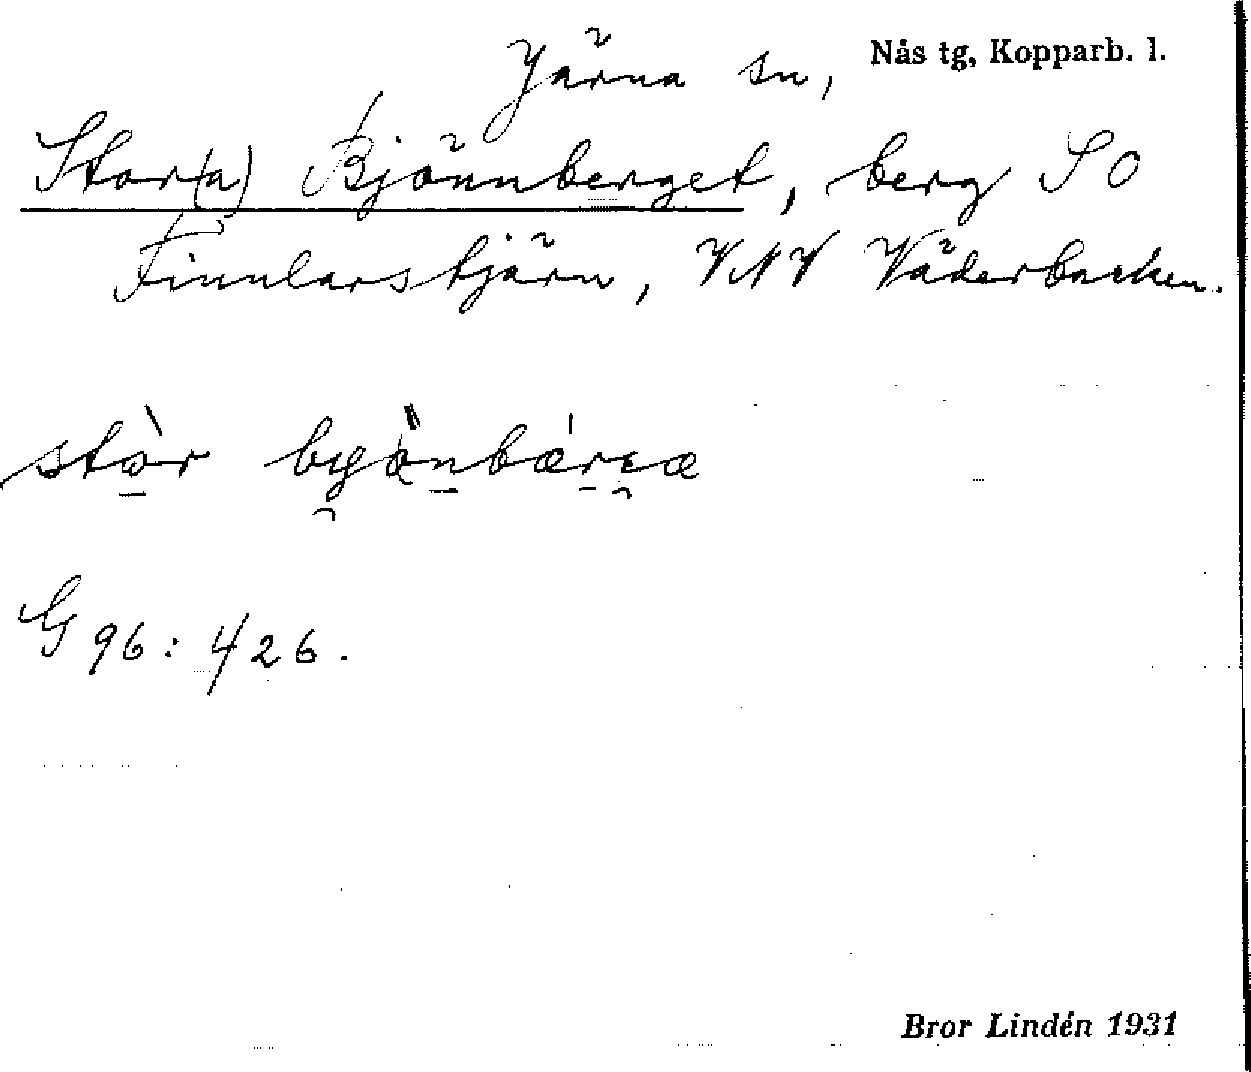 Järna sn, Nås tg, Kopparb. l.
Stor(a) Björnberget, berg SO
Finnlarstjärn, VNV Väderbacken.
stòr
G 96: 426.
Bror Lindén 1931